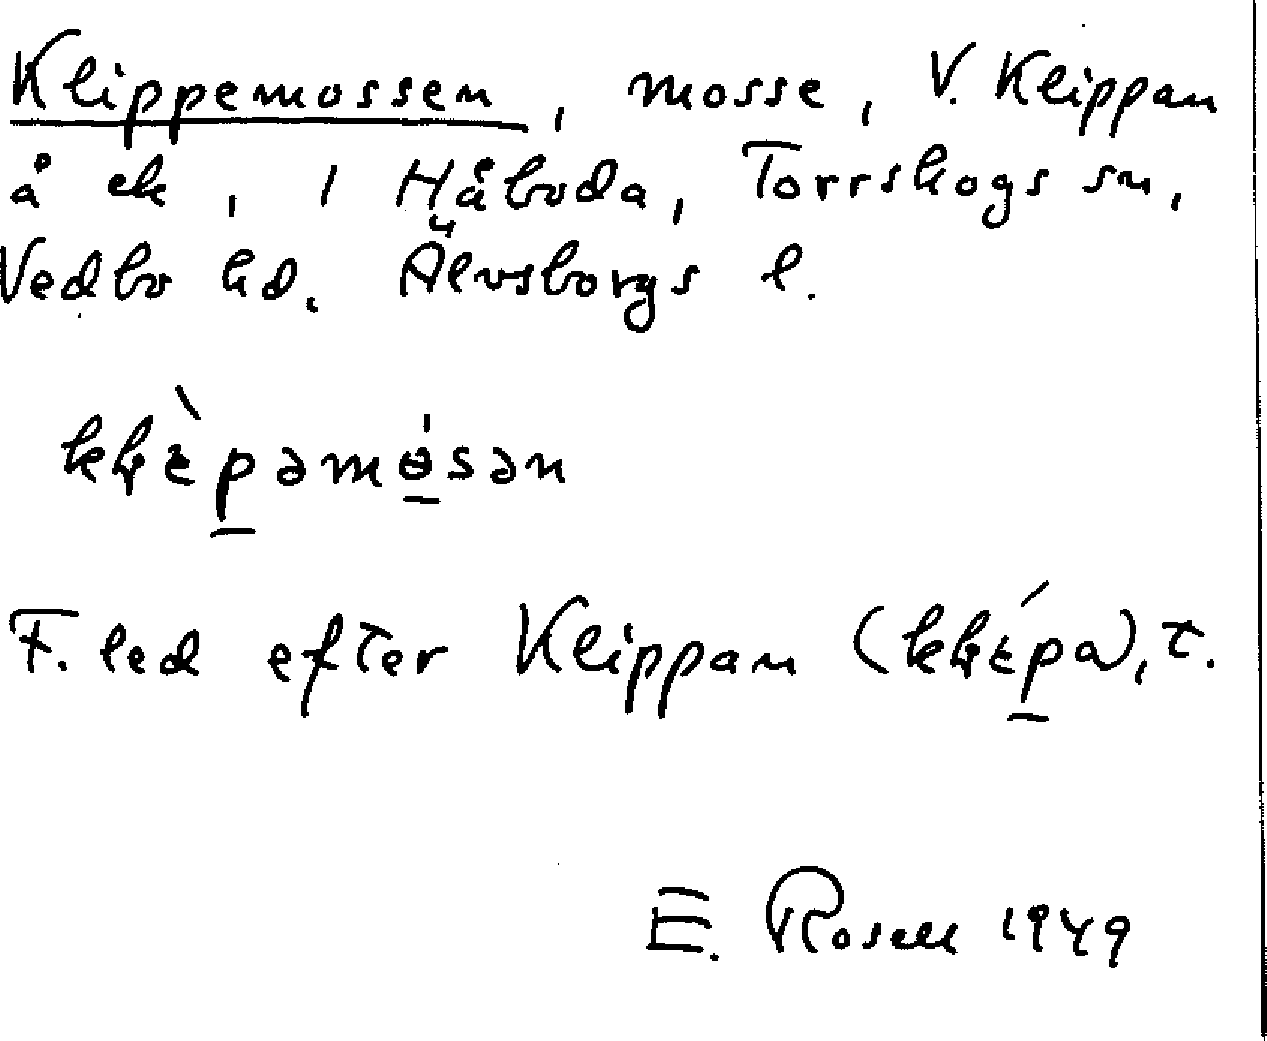 Klippemossen, mosse, V. Klippan
å ek, 1 Håboda, Torrskogs sn,
Vedbo hd. Älvsborgs l.
F. led efter Klippan
E. Rosell 1949